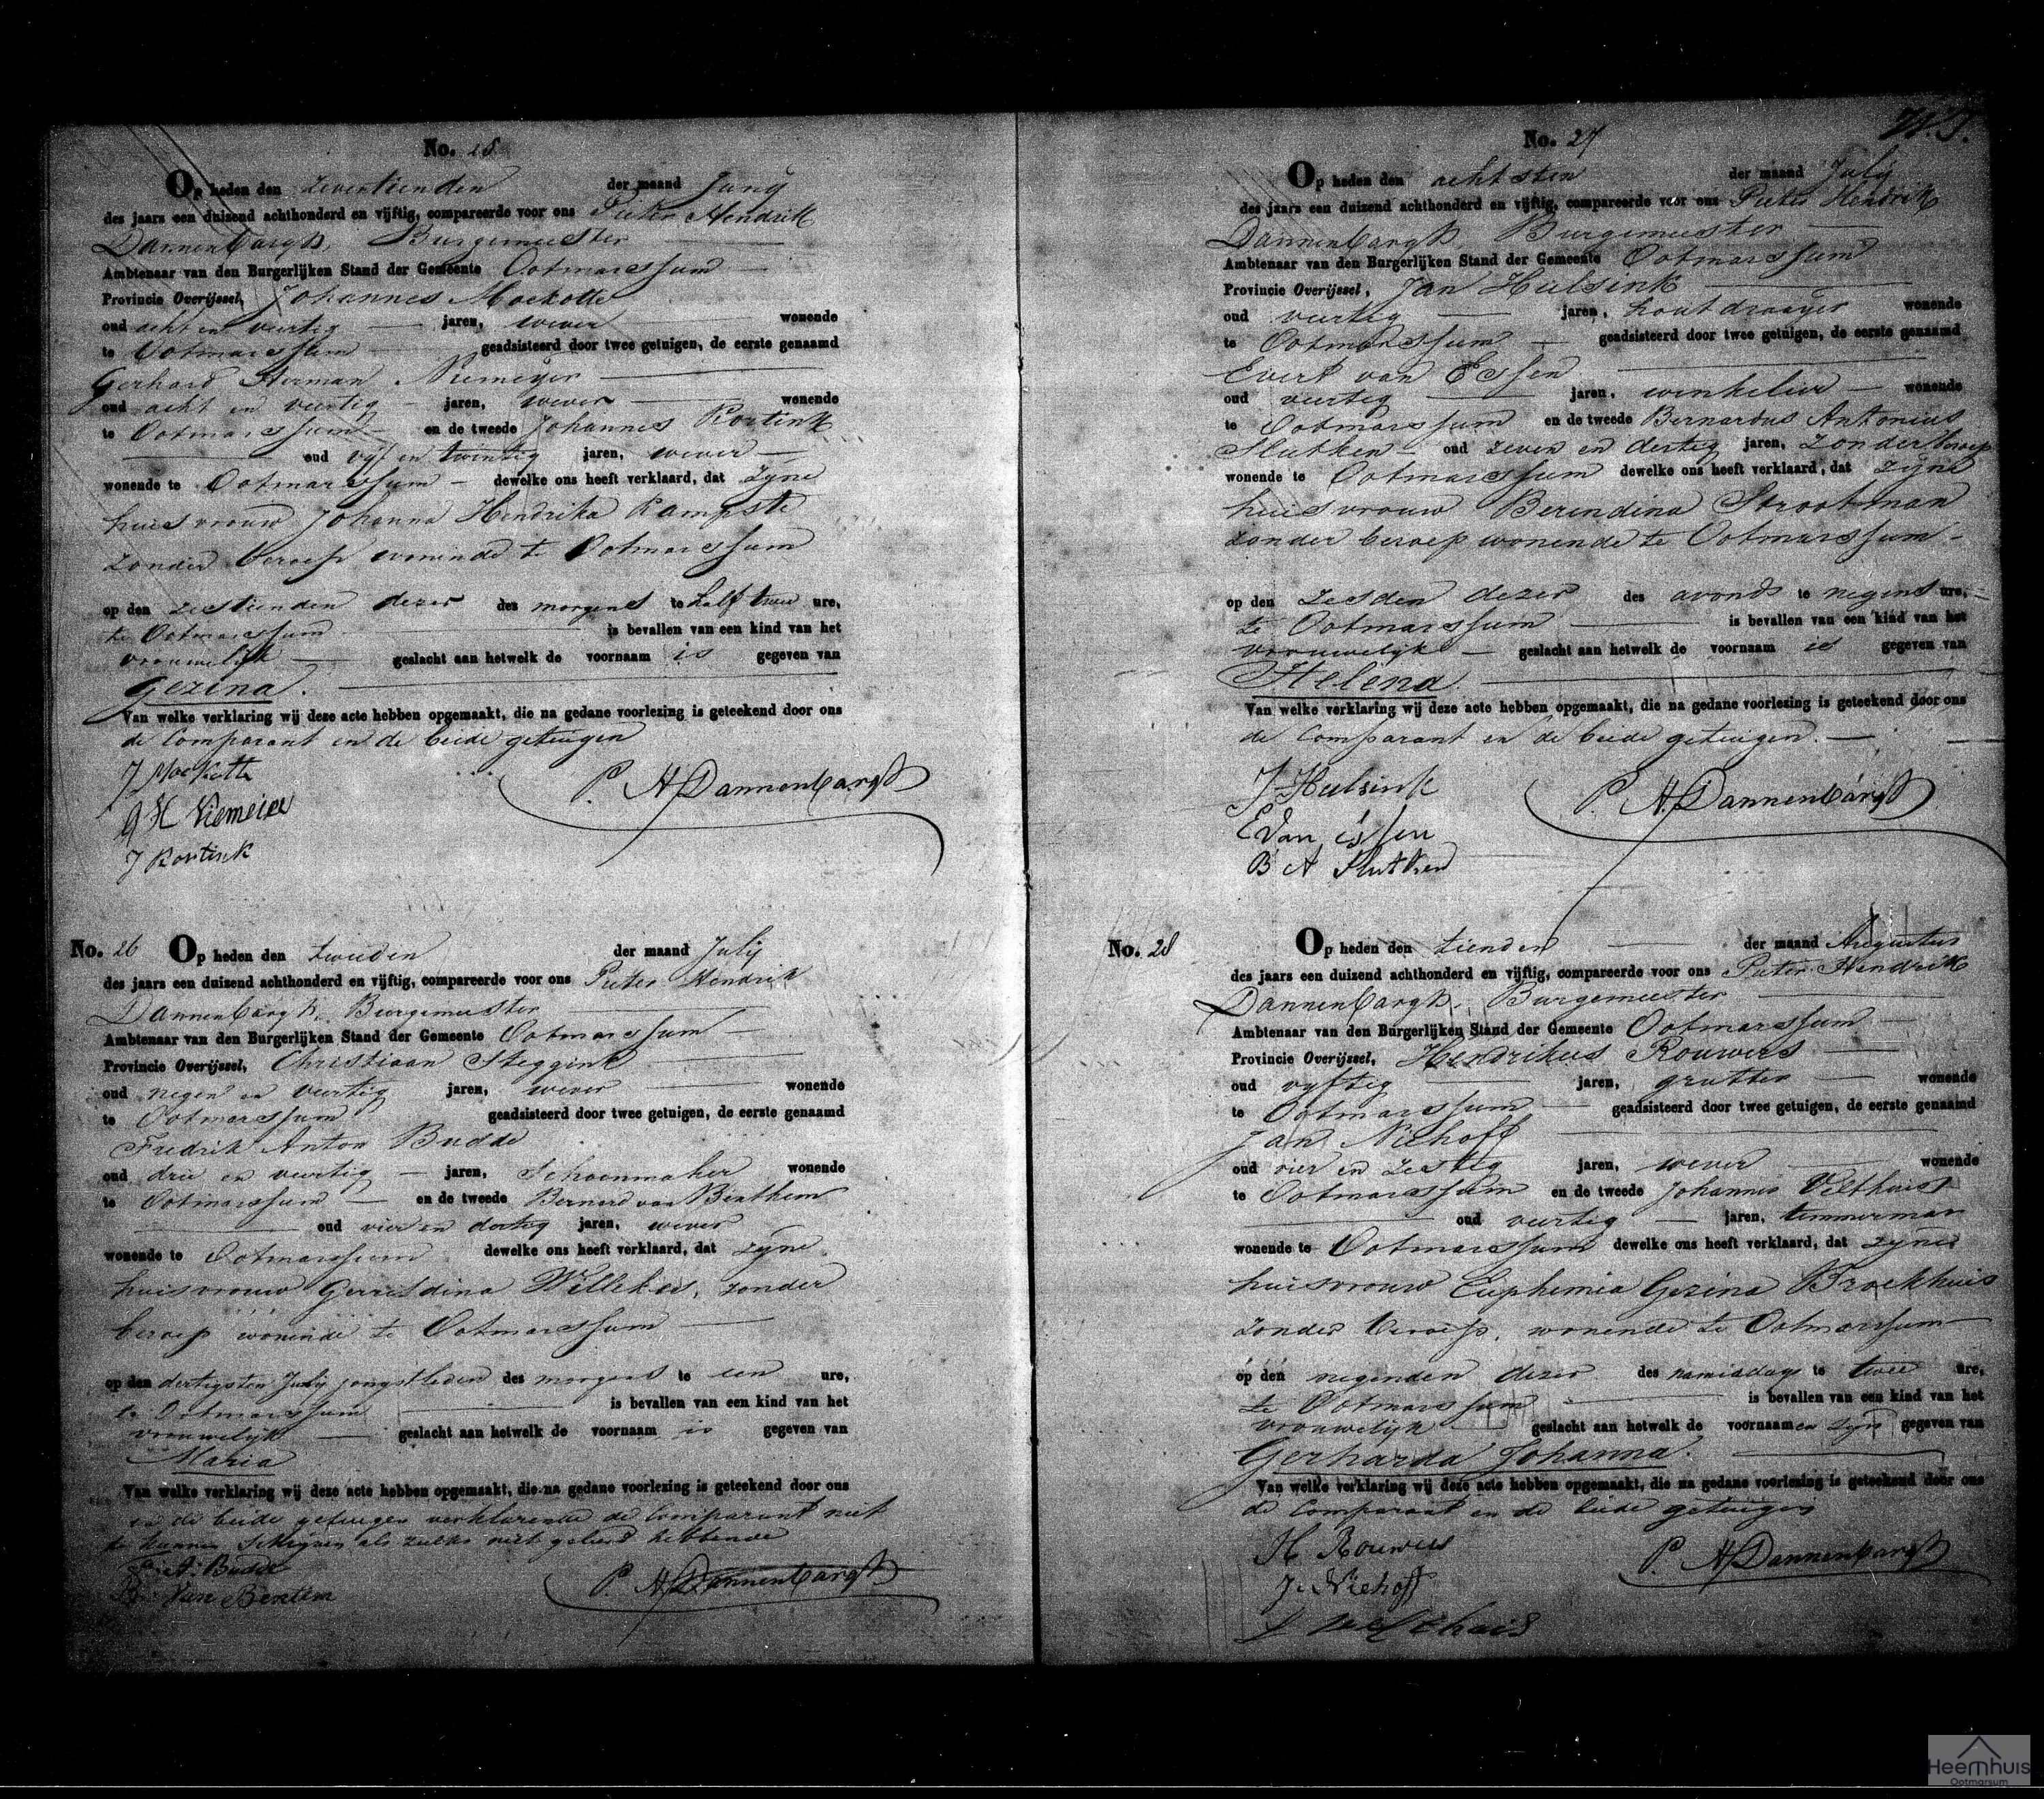 No. 25
Op heden den zeventienden der maand Juny
des jaars een duizend achthonderd en vijftig, compareerde voor ons Pieter Hendrik
Dannenbargh, Burgemeester
Ambtenaar van den Burgerlijken Stand der Gemeente Ootmarssum
Provincie Overijssel, Johannes Mockotte
oud acht en veertig jaren, wever wonende
te Ootmarssum geadsisteerd door twee getuigen, de eerste genaamd
Gerhard Herman Niemeijer
oud acht en veertig jaren, wever wonende
te Ootmarssum en de tweede Johannes Kortink
oud vyf en twintig jaren, wever
wonende te Ootmarssum dewelke ons heeft verklaard, dat zyne
huisvrouw Johanna Hendrika Kampste
zonder beroep wonende te Ootmarssum
op den zestienden dezer des morgens te half twee ure,
te Ootmarssum is bevallen van een kind van het
vrouwelijk geslacht aan hetwelk de voornaam is gegeven van
Gezina.
Van welke verklaring wij deze acte hebben opgemaakt, die na gedane voorlezing is geteekend door ons
de Comparant en de beide getuigen
J Mockotte
P. H. Dannenbargh
G H Niemeijer
J Kortink
No. 26 Op heden den tweeden der maand July
des jaars een duizend achthonderd en vijftig, compareerde voor ons Pieter Hendrik
Dannenbargh, Burgemeester
Ambtenaar van den Burgerlijken Stand der Gemeente Ootmarssum
Provincie Overijssel, Christiaan Steggink
oud negen en veertig jaren, wever wonende
te Ootmarssum geadsisteerd door twee getuigen, de eerste genaamd
Fredrik Anton Budde
oud drie en veertig jaren, Schoenmaker wonende
te Ootmarssum en de tweede Bernard van Benthem
oud vier en dertig jaren, wever
wonende te Ootmarssum dewelke ons heeft verklaard, dat zyne
huisvrouw Gerritdina Willeker, zonder
beroep wonende te Ootmarssum
op den dertigsten July jongstleden des morgens te een ure,
te Ootmarssum is bevallen van een kind van het
vrouwelijk geslacht aan hetwelk de voornaam is gegeven van
Maria
Van welke verklaring wij deze acte hebben opgemaakt, die na gedane voorlezing is geteekend door ons
en de beide getuigen verklarende de Comparant niet
te kunnen schrijven als zulks niet geleerd hebbende
F. A. Budde
B. Van Bentem
P. H. Dannenbargh
No. 27
Op heden den achtsten der maand July
des jaars een duizend achthonderd en vijftig, compareerde voor ons Pieter Hendrik
Dannenbargh, Burgemeester
Ambtenaar van den Burgerlijken Stand der Gemeente Ootmarssum
Provincie Overijssel, Jan Hulsink
oud veertig jaren, houtdraayer wonende
te Ootmarssum geadsisteerd door twee getuigen, de eerste genaamd
Evert van Essen
oud veertig jaren, winkelier wonende
te Ootmarssum en de tweede Bernardus Antonius
Slutken oud zeven en dertig jaren, zonder beroep
wonende te Ootmarssum dewelke ons heeft verklaard, dat zyne
huisvrouw Berendina Strootman
zonder beroep wonende te Ootmarssum
op den zesden dezer des avonds te negen ure,
te Ootmarssum is bevallen van een kind van het
vrouwelijk geslacht aan hetwelk de voornaam is gegeven van
Helena.
Van welke verklaring wij deze acte hebben opgemaakt, die na gedane voorlezing is geteekend door ons
de Comparant en de beide getuigen.
J Hulsink
P. H. Dannenbargh
E Van Essen
B A Slutken
No. 28 Op heden den tienden der maand Augustus
des jaars een duizend achthonderd en vijftig, compareerde voor ons Pieter Hendrik
Dannenbargh, Burgemeester
Ambtenaar van den Burgerlijken Stand der Gemeente Ootmarssum
Provincie Overijssel, Hendrikus Rouwers
oud vyftig jaren, grutter wonende
te Ootmarssum geadsisteerd door twee getuigen, de eerste genaamd
Jan Niehoff
oud vier en zestig jaren, wever wonende
te Ootmarssum en de tweede Johannes Velthuis
oud veertig jaren, timmerman
wonende te Ootmarssum dewelke ons heeft verklaard, dat zyne
huisvrouw Euphemia Gezina Broekhuis
zonder beroep, wonende te Ootmarssum
op den negenden dezer des namiddags te twee ure,
te Ootmarssum is bevallen van een kind van het
vrouwelijk geslacht aan hetwelk de voornaamen zyn gegeven van
Gerharda Johanna.
Van welke verklaring wij deze acte hebben opgemaakt, die na gedane voorlezing is geteekend door ons
de Comparant en de beide getuigen
H Rouwers
P. H. Dannenbargh
J. Niehoff
J Velthuis
Heemhuis
Ootmarsum